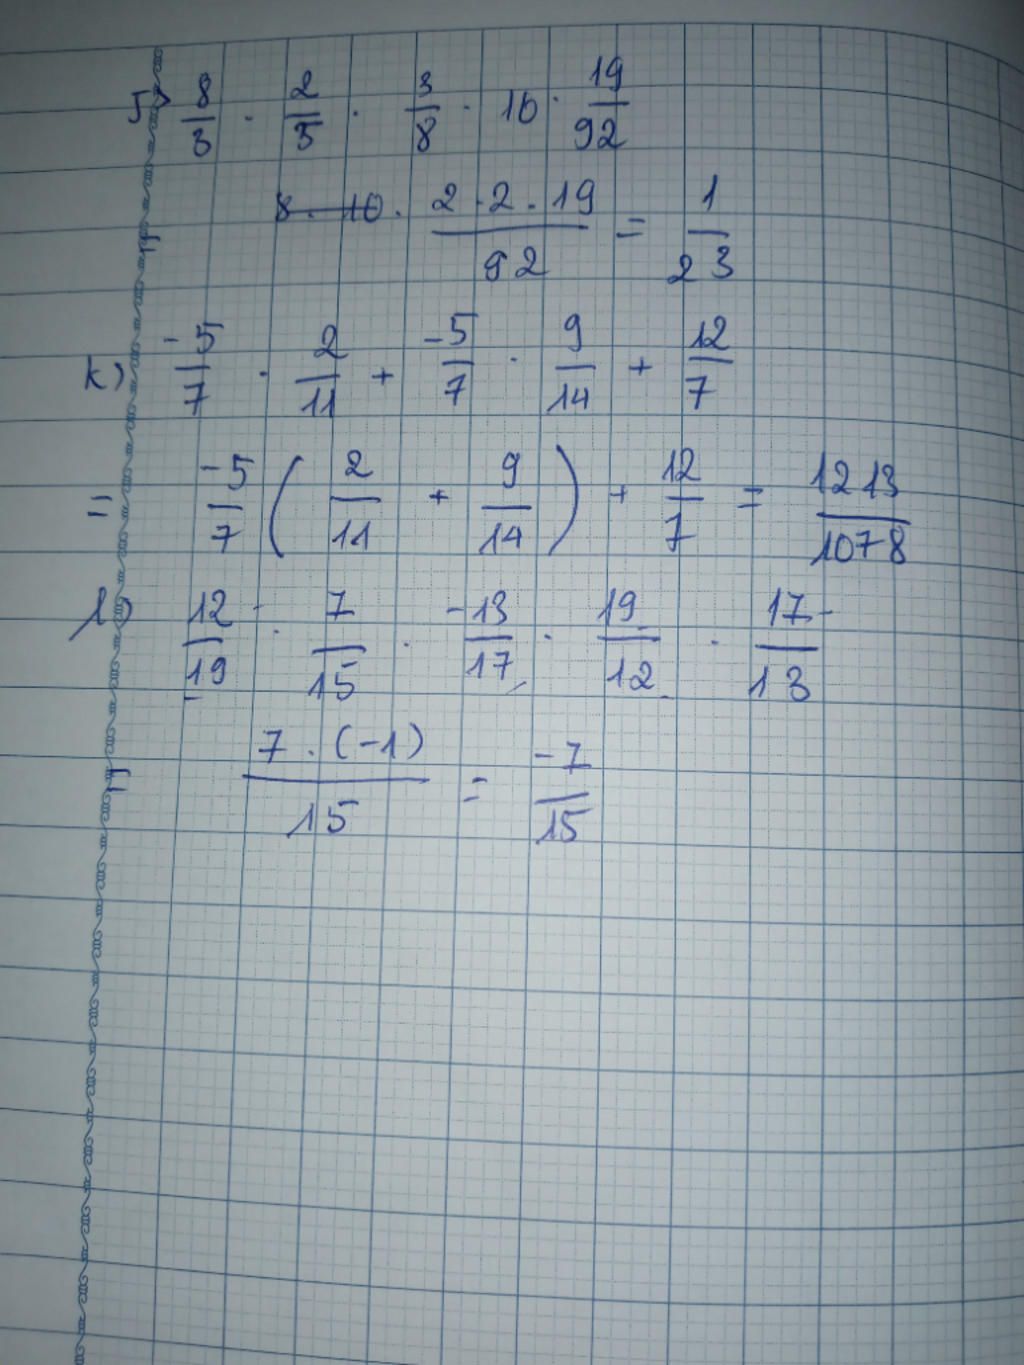 J) 8/3 · 2/5 · 3/8 · 10 · 19/92
2 · 2 · 19 / 92 = 1/23
k) -5/7 · 2/11 + -5/7 · 9/14 + 12/7
= -5/7 ( 2/11 + 9/14 ) + 12/7 = 1213/1078
l) 12/19 · 7/15 · -13/17 · 19/12 · 17/13
7 · (-1) / 15 = -7/15